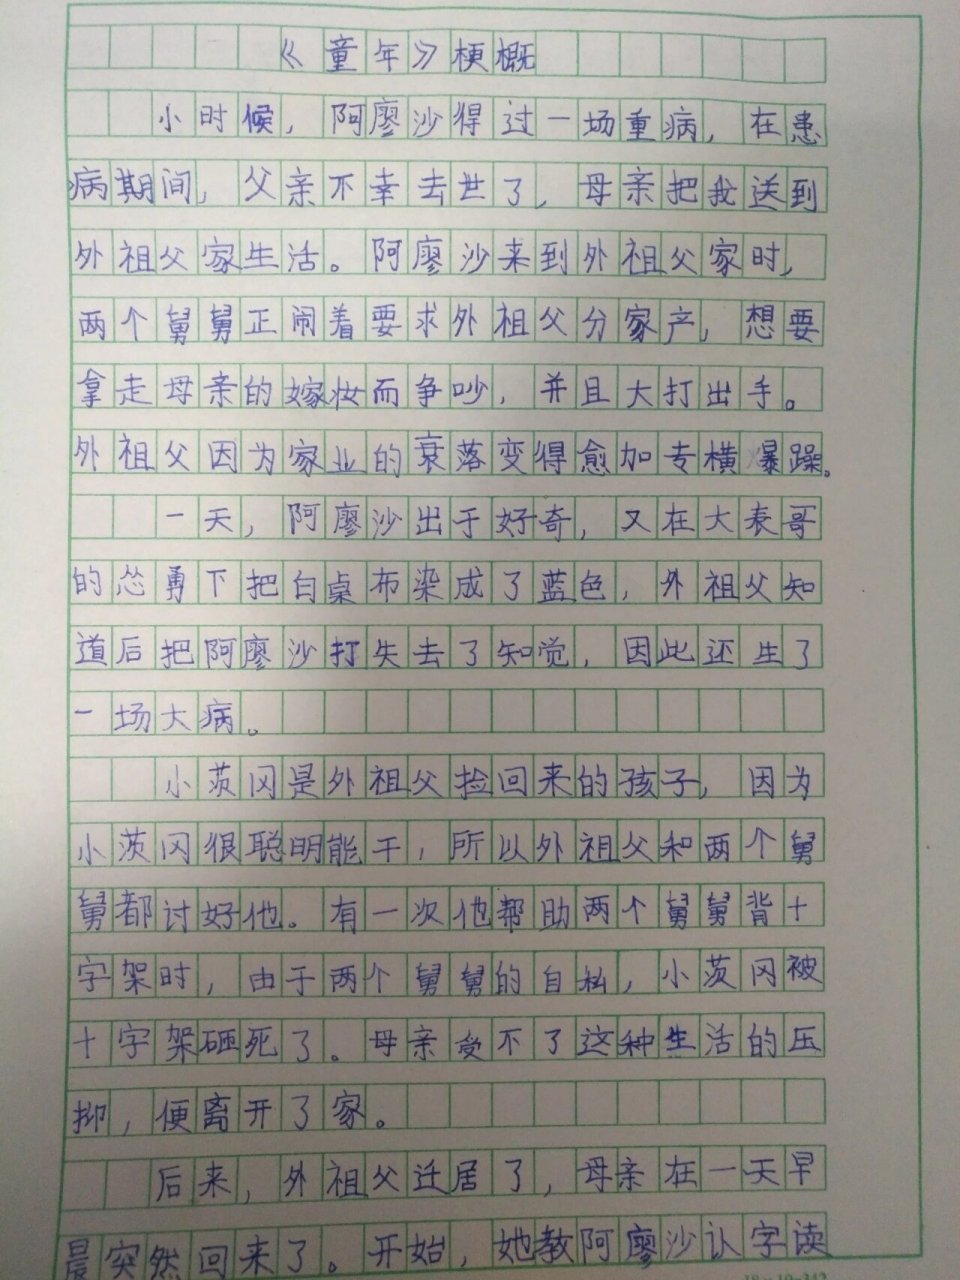 《童年》梗概
小时候，阿廖沙得过一场重病，在患
病期间，父亲不幸去世了，母亲把我送到
外祖父家生活。阿廖沙来到外祖父家时，
两个舅舅正闹着要求外祖父分家产，想要
拿走母亲的嫁妆而争吵，并且大打出手。
外祖父因为家业的衰落变得愈加专横爆躁。
一天，阿廖沙出于好奇，又在大表哥
的怂勇下把白桌布染成了蓝色，外祖父知
道后把阿廖沙打失去了知觉，因此还生了
一场大病。
小茨冈是外祖父捡回来的孩子，因为
小茨冈很聪明能干，所以外祖父和两个舅
舅都讨好他。有一次他帮助两个舅舅背十
字架时，由于两个舅舅的自私，小茨冈被
十字架砸死了。母亲受不了这种生活的压
抑，便离开了家。
后来，外祖父迁居了，母亲在一天早
晨突然回来了。开始，她教阿廖沙认字读